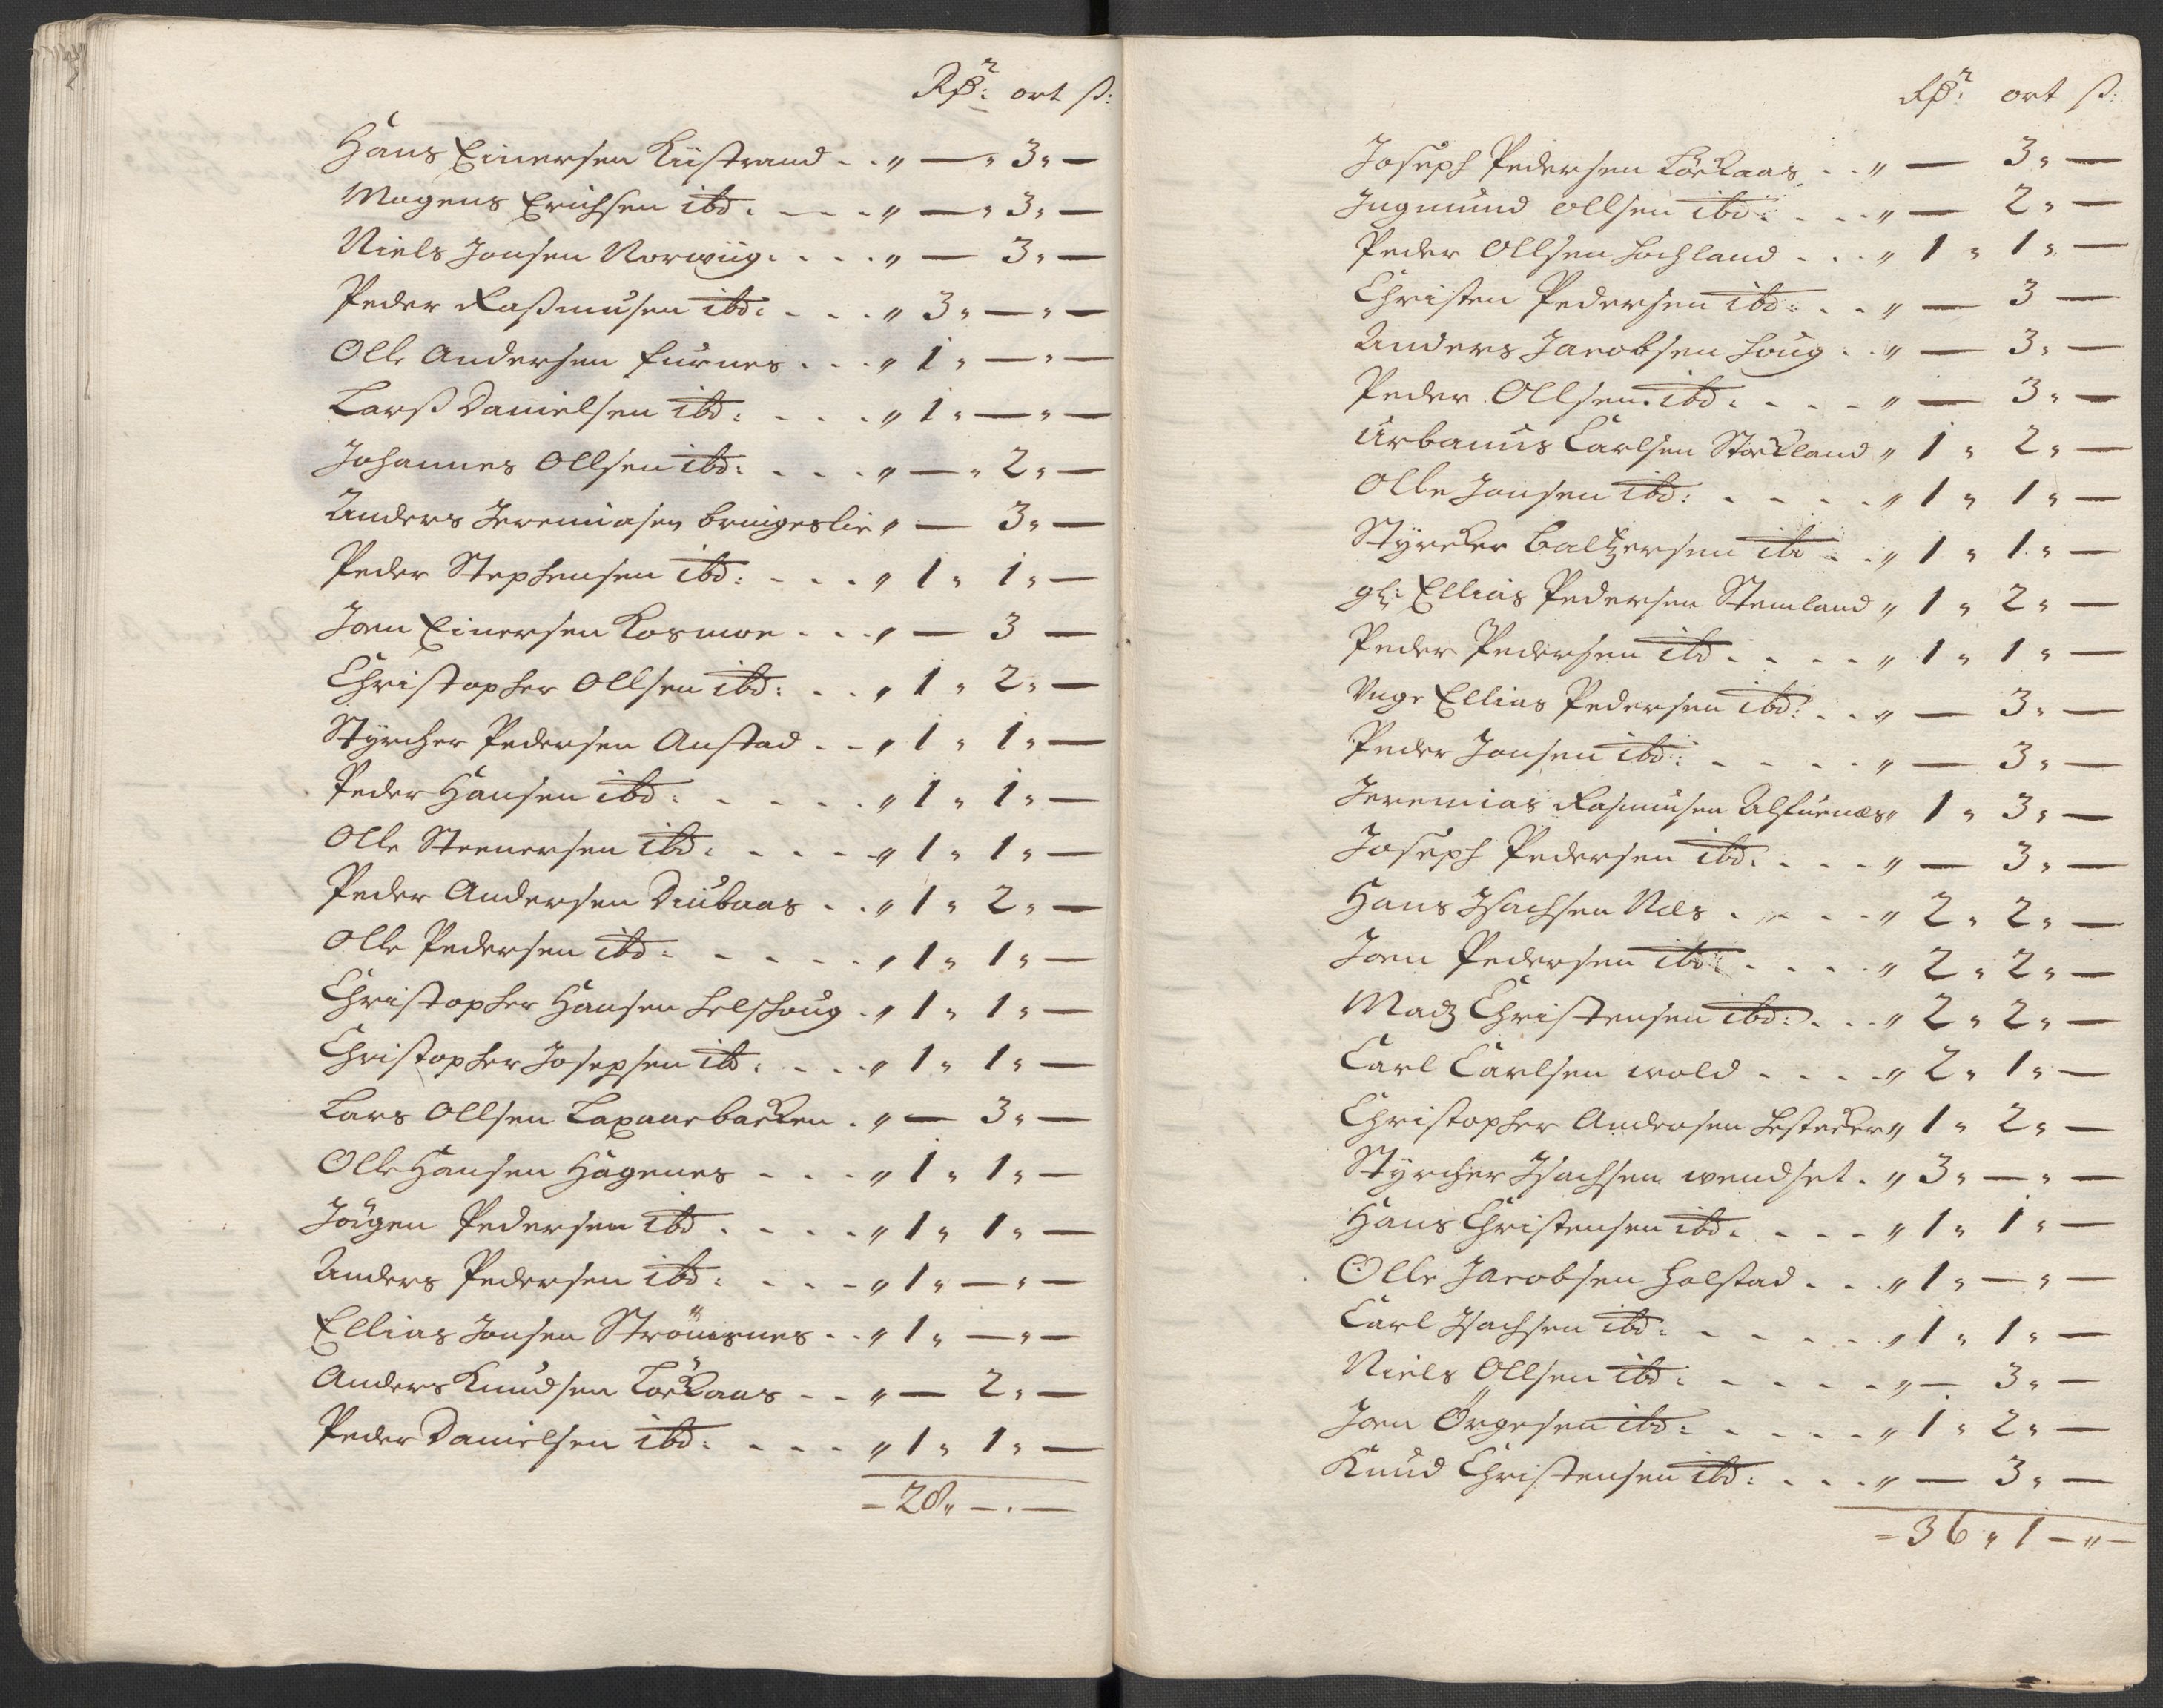 Rdr: ort ß:
Hans Einersen Kiistrand . . " — " 3 " —
Mogens Erichsen ibd: . - - - " — " 3 " —
Niels Jonsen Norwiig . . . . " — 3 " —
Peder Rasmusen ibd: . - - . " 3 " — " —
Olle Andersen furnes . . . " 1 " — " —
Larß Danielsen ibd: . - - . " 1 " — " —
Johannes Ollsen ibd: . - - . " — " 2 " —
Anders Jeremiasen bringeslie " — 3 " —
Peder Stephensen ibd: - - - . " 1 " 1 " —
Joen Einersen Kosmoe - . . " — 3 —
Christopher Ollsen ibd: . . . " 1 " 2 " —
Styrcher Pedersen Anstad . - - " 1 " 1 " —
Peder Hansen ibd: . - - - . " 1 " 1 " —
Olle Steenersen ibd: . - - - " 1 " 1 " —
Peder Andersen Diubaas . . " 1 " 2 " —
Olle Pedersen ibd: . - - - . " 1 " 1 " —
Christopher Hansen helshoug . " 1 " 1 " —
Christopher Josepsen ib: . - - . " 1 " 1 " —
Lars Ollsen Laxaaebacken . " — 3 " —
Olle Hansen Hagenes - . . - " 1 " 1 " —
Jörgen Pedersen ibd . - - - " 1 " 1 " —
Anders Pedersen ibd: . - - " 1 " — " —
Ellias Jonsen Strömsnes . . " 1 " — " —
Anders Knudsen Löckaas - - " — 2 " —
Peder Danielsen ibd: . - - - " 1 " 1 " —
= 28 " — . —
Rdr: ort ß:
Joseph Pedersen Löckaas . . " — 3 " —
Ingmund Ollsen ibd: . . . " — 2 " —
Peder Ollsen hochland . . . " 1 " 1 " —
Christen Pedersen ibd: . . " — 3 —
Anders Jacobsen houg . . " — 3 " —
Peder Ollsen ibd: . - - - " — 3 " —
Urbanus Carlsen Storckland " 1 " 2 " —
Olle Jonsen ibd: . - - - . " 1 " 1 " —
Styrcker baltzersen ibd . . " 1 " 1 " —
gl: Ellias Pedersen Stemland " 1 " 2 " —
Peder Pedersen ibd . . - - " 1 " 1 " —
Unge Ellias Pedersen ibd: . . " — 3 " —
Peder Jonsen ibd: . - - - . " — 3 " —
Jeremias Rasmusen Alsfurnæs " 1 " 3 " —
Joseph Pedersen ibd: . - - " — 3 " —
Hans Isachsen Næs . . - - " 2 " 2 " —
Joen Pedersen ibd: . . . . " 2 " 2 " —
Madz Christensen ibd: . . . " 2 " 2 " —
Carl Carlsen wold . - - - " 2 " 1 " —
Christopher Andersen hestecker " 1 " 2 " —
Styrcher Isachsen wendset . " 3 " — " —
Hans Christensen ibd: . - - - " 1 " 1 " —
Olle Jacobsen holstad . . . " 1 " — " —
Carl Isachsen ibd: . - - - - " 1 " 1 " —
Niels Ollsen ibd: . - - - - " — 3 " —
Joen Örgesen ibd: - . - . - " 1 " 2 " —
Knud Christensen ibd: . . . " — 3 " —
= 36 " 1 — " —